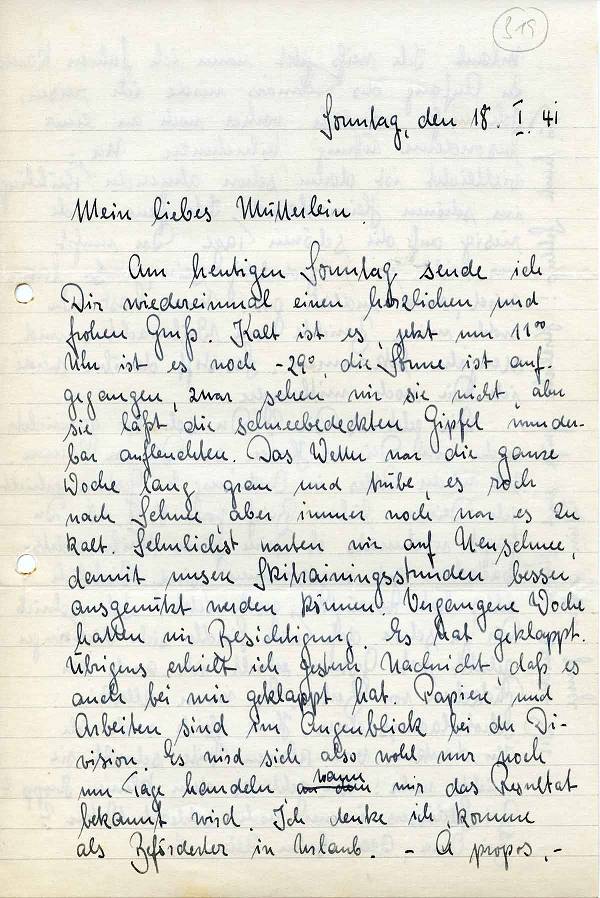 319
Sonntag, den 18. I. 41
Mein liebes Mütterlein.
Am heutigen Sonntag sende ich
Dir wiedereinmal einen herzlichen und
frohen Gruß. Kalt ist es, jetzt um 11⁰⁰
Uhr ist es noch -29°, die Sonne ist auf-
gegangen, zwar sehen wir sie nicht, aber
sie läßt die schneebedeckten Gipfel wunder-
bar aufleuchten. Das Wetter war die ganze
Woche lang grau und trübe, es roch
nach Schnee, aber immer noch war es zu
kalt. Sehnlichst warten wir auf Neuschnee,
damit unsere Skitrainingsstunden besser
ausgenützt werden können. Vergangene Woche
hatten wir Besichtigung. Es hat geklappt.
Übrigens erhielt ich gestern Nachricht, daß es
auch bei mir geklappt hat. Papiere und
Arbeiten sind im Augenblick bei der Di-
vision. Es wird sich also wohl nur noch
um Tage handeln wann mir das Resultat
bekannt wird. Ich denke ich komme
als Beförderter in Urlaub. - A propos,-